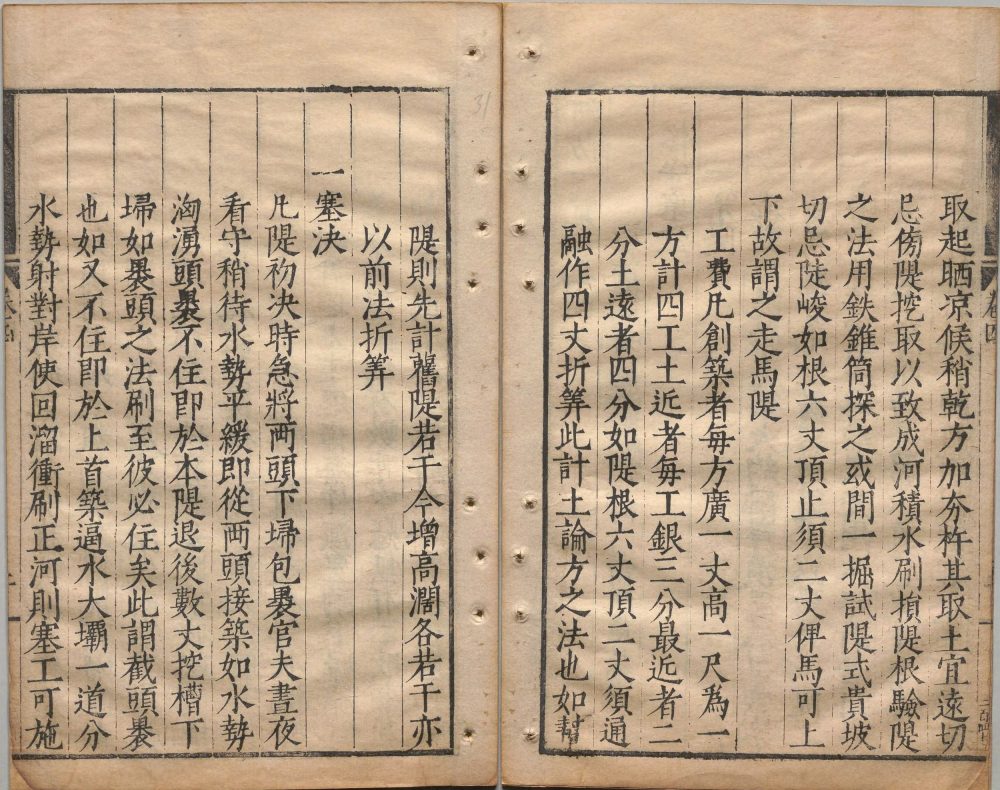 取起晒凉候稍乾方加夯杵其取土宜遠切
忌傍隄挖取以致成河積水刷損隄根驗隄
之法用鉄錐筒探之或間一掘試隄式貴坡
切忌陡峻如根六丈頂止須二丈俾馬可上
下故謂之走馬隄
工費凡創築者每方廣一丈高一尺爲一
方計四工土近者每工銀三分最近者二
分土遠者四分如隄根六丈頂二丈須通
融作四丈折筭此計土論方之法也如幇
隄則先計舊隄若干今增高濶各若干亦
以前法折筭
一塞決
凡隄初決時急將兩頭下埽包裹官夫晝夜
看守稍待水勢平緩即從兩頭接築如水勢
洶湧頭裹不住即於本隄退後數丈挖槽下
埽如裹頭之法刷至彼必住矣此謂截頭裹
也如又不住即於上首築逼水大壩一道分
水勢射對岸使回溜衝刷正河則塞工可施
卷四
31